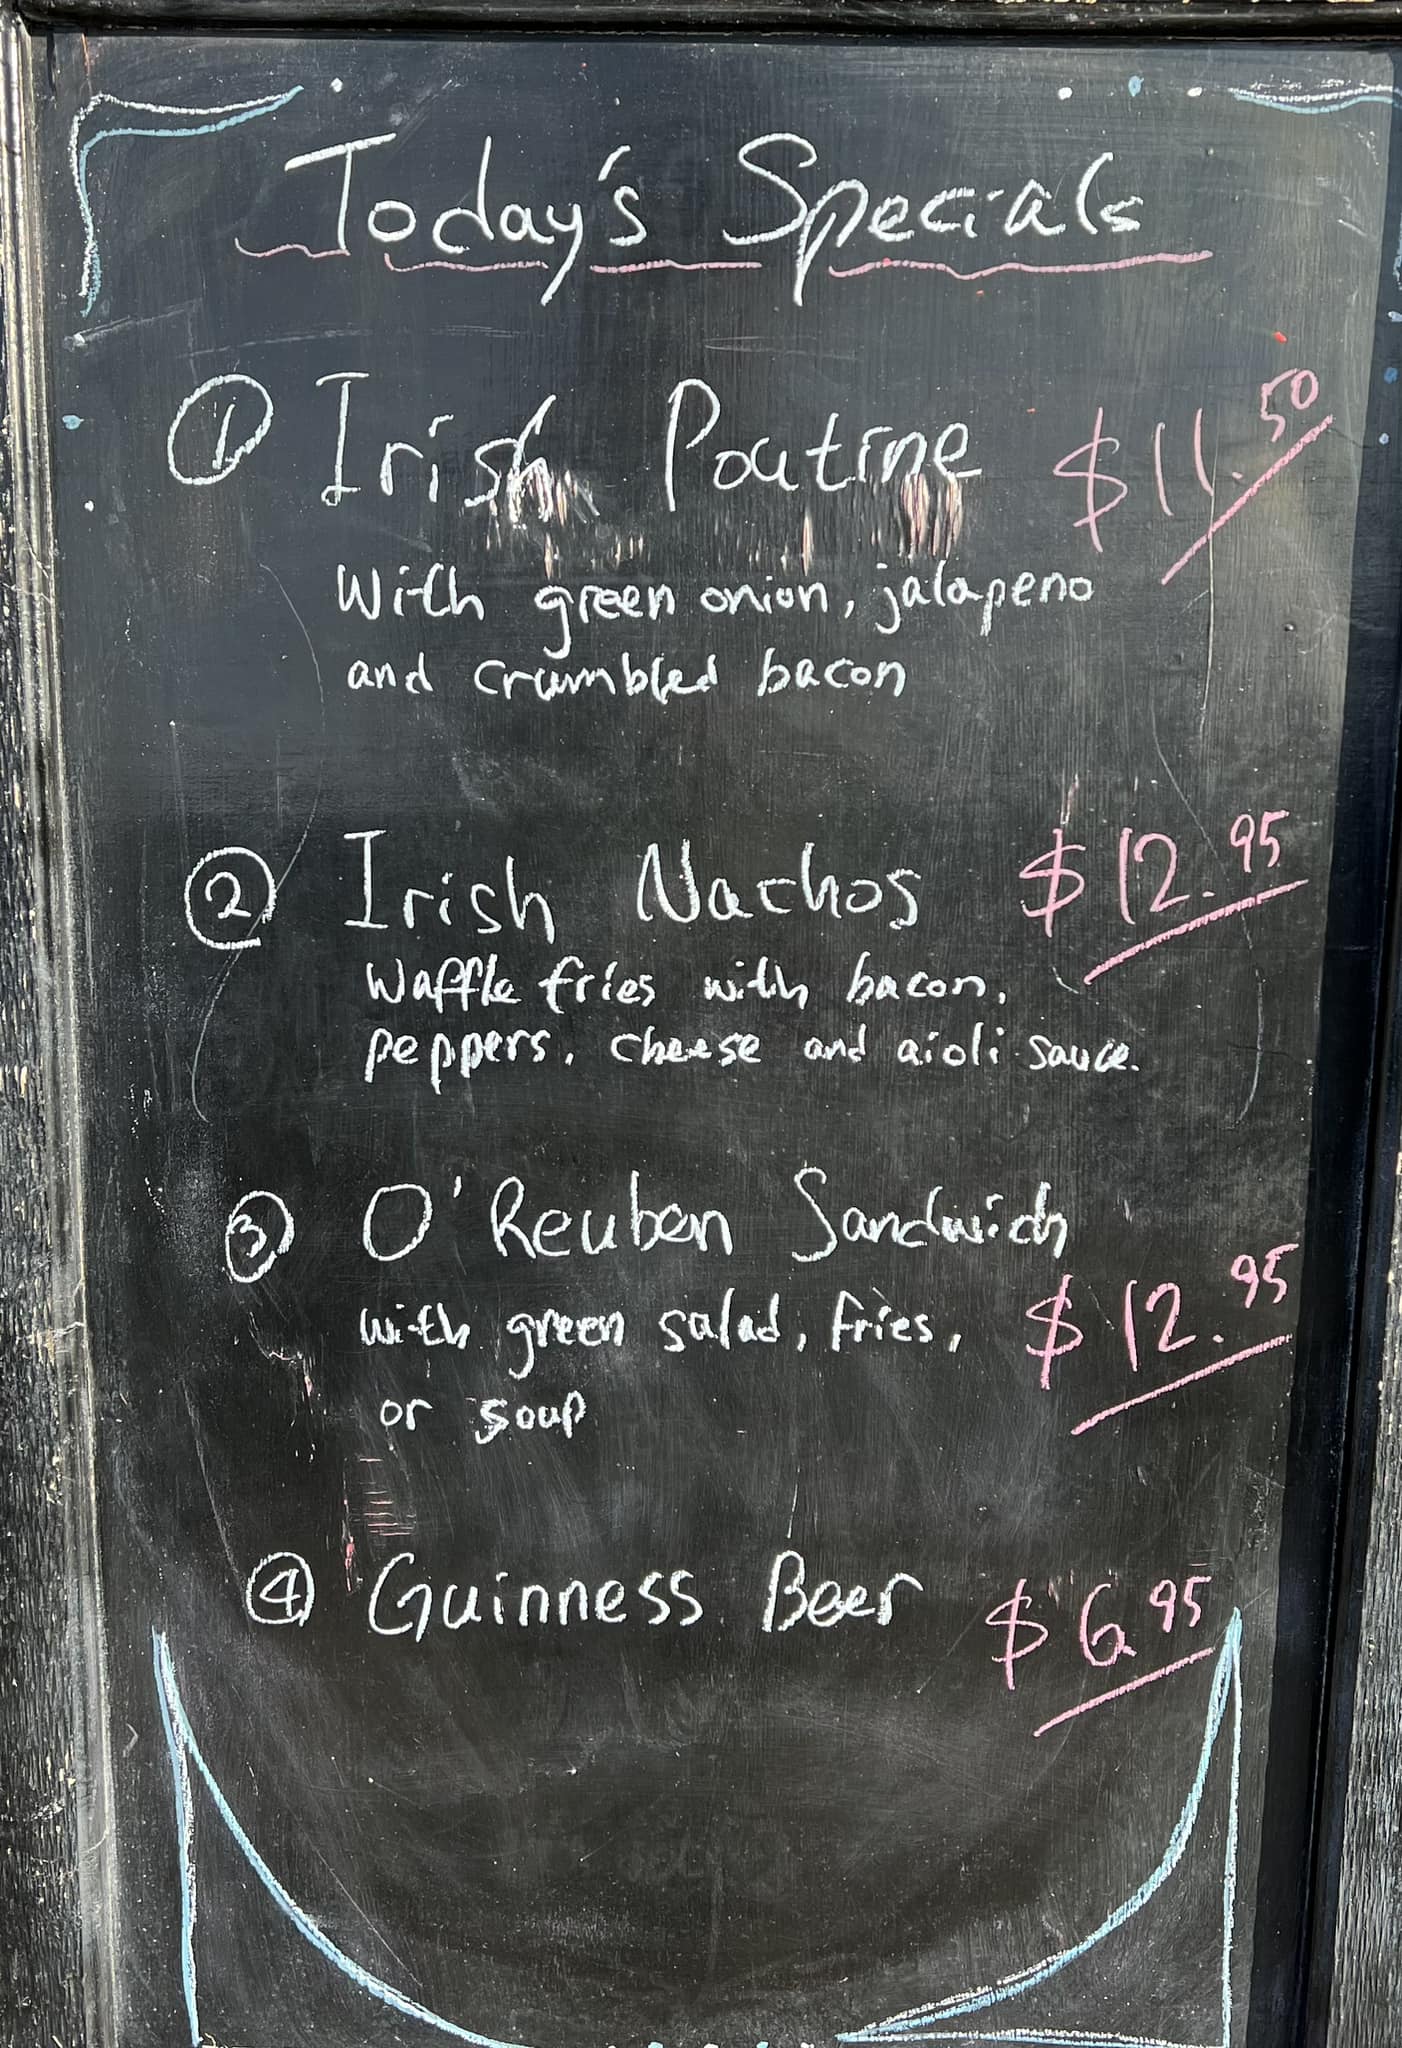 Today's Specials
① Irish Poutine $11.50
With green onion, jalapeno
and crumbled bacon
② Irish Nachos $12.95
Waffle fries with bacon,
peppers, cheese and aioli sauce.
③ O'Reuben Sandwich
with green salad, fries, $12.95
or soup
④ Guinness Beer $6.95